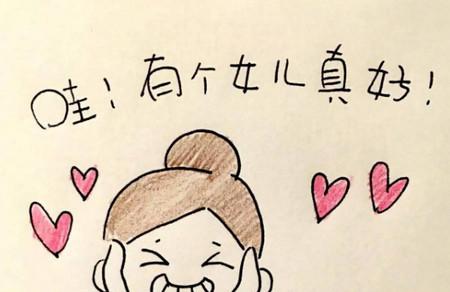 哇！有个女儿真好！